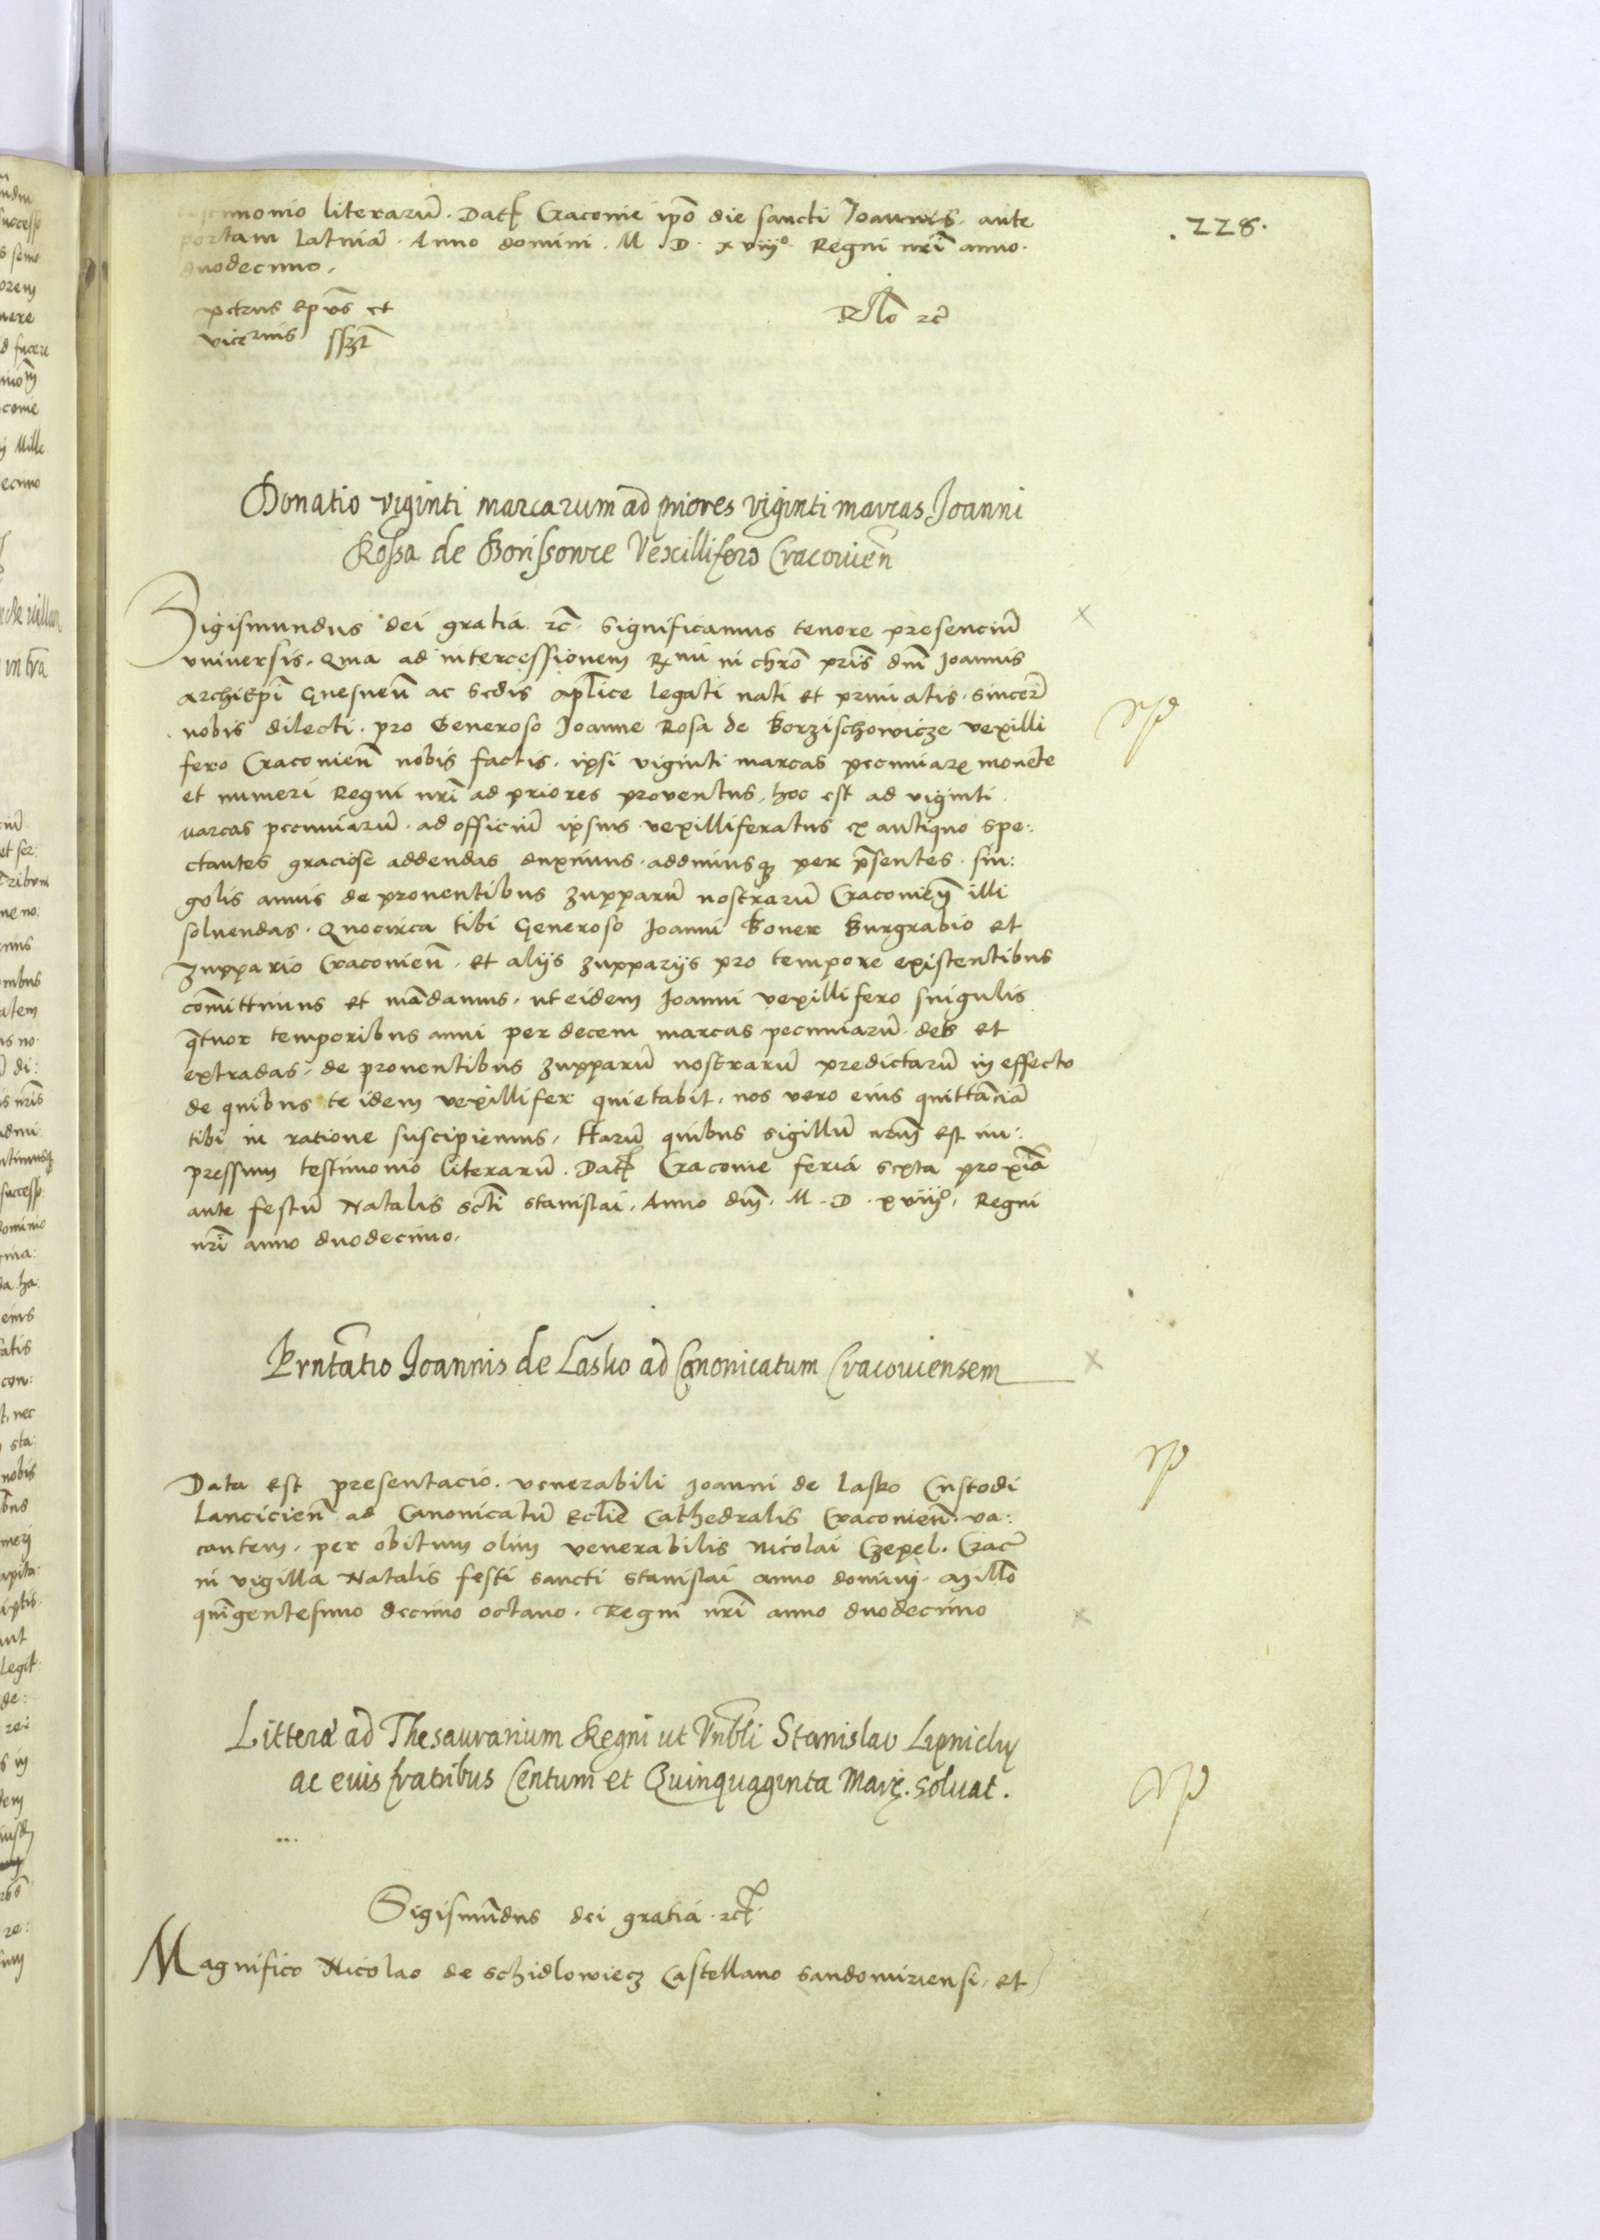 .228.
monio literarū. Datꝭ Cracovie ip̄o die sancti Joannis. ante
portam latniā. Anno domini. M. D. xviijº. Regni nr̄i anno.
duodecimo.
petrus Ep̄us et
vicecn̄us sszt
Rl̄o rc̄
Donatio viginti marcarum ad priores viginti marcas Joanni
Rossa de Borissowice Vexillifero Cracovien̄
Sigismundus dei gratia rc̄. Significamus tenore presenciū
universis. Quia ad intercessionem Rx̄mi in chrō pr̄is dn̄i Joannis
Archiep̄i Gnesnen̄ ac sedis ap̄lice legati nati et primatis. sincerē
nobis dilecti. pro Generoso Joanne Rosa de Borzischowicze vexilli
fero Cracovien̄ nobis factis. ipsi viginti marcas pecuniarꝝ monete
et numeri Regni nr̄i ad priores proventus, hoc est ad viginti
marcas pecuniarū. ad officiū ipsius vexilliferatus ex antiquo spe:
ctantes graciose addendas duximus. addimusqꝫ per p̄sentes. sin:
gulis annis de proventibus zupparū nostrarū Cracovien̄ illi
solvendas. Quocirca tibi Generoso Joanni Boner Burgrabio et
Zuppario Cracovien̄. et alijs zupparijs pro tempore existentibus
com̄ittimus et mādamus. ut eidem Joanni vexillifero singulis
q̄tuor temporibus anni per decem marcas pecuniarū. des et
extradas. de proventibus zupparū nostrarū predictarū in effectu
de quibus te idem vexillifer quietabit. nos vero eius quittāciā
tibi in ratione suscipiemus. Harū quibus sigillū nr̄um est im:
pressum testimonio literarū. Datꝭ Cracovie feria sexta proxiā
ante festū Natalis scti Stanislai. Anno dn̄i. M. D. xviijº. Regni
nr̄i anno duodecimo.
Prn̄tatio Joannis de Lasko ad Canonicatum Cracoviensem
Data est presentacio. venerabili Joanni de Lasko Custodi
Lancicien̄ ad Canonicatū Ecl̄ie Cathedralis Cracovien̄. va:
cantem. per obitum olim venerabilis Nicolai Czepel. Crac̄
in vigilia Natalis festi sancti Stanislai anno domini. Millō
quīgentesimo decimo octavo. Regni nr̄i anno duodecimo
Litterae ad Thesaurarium Regni ut Vn̄bli Stanislao Lipniczky
ac eius fratribus Centum et Quinquaginta Marc̨. solvat.
Sigismūdus dei gratia. rc̄.
Magnifico Nicolao de Schidlowiecz Castellano Sandomiriensi. et